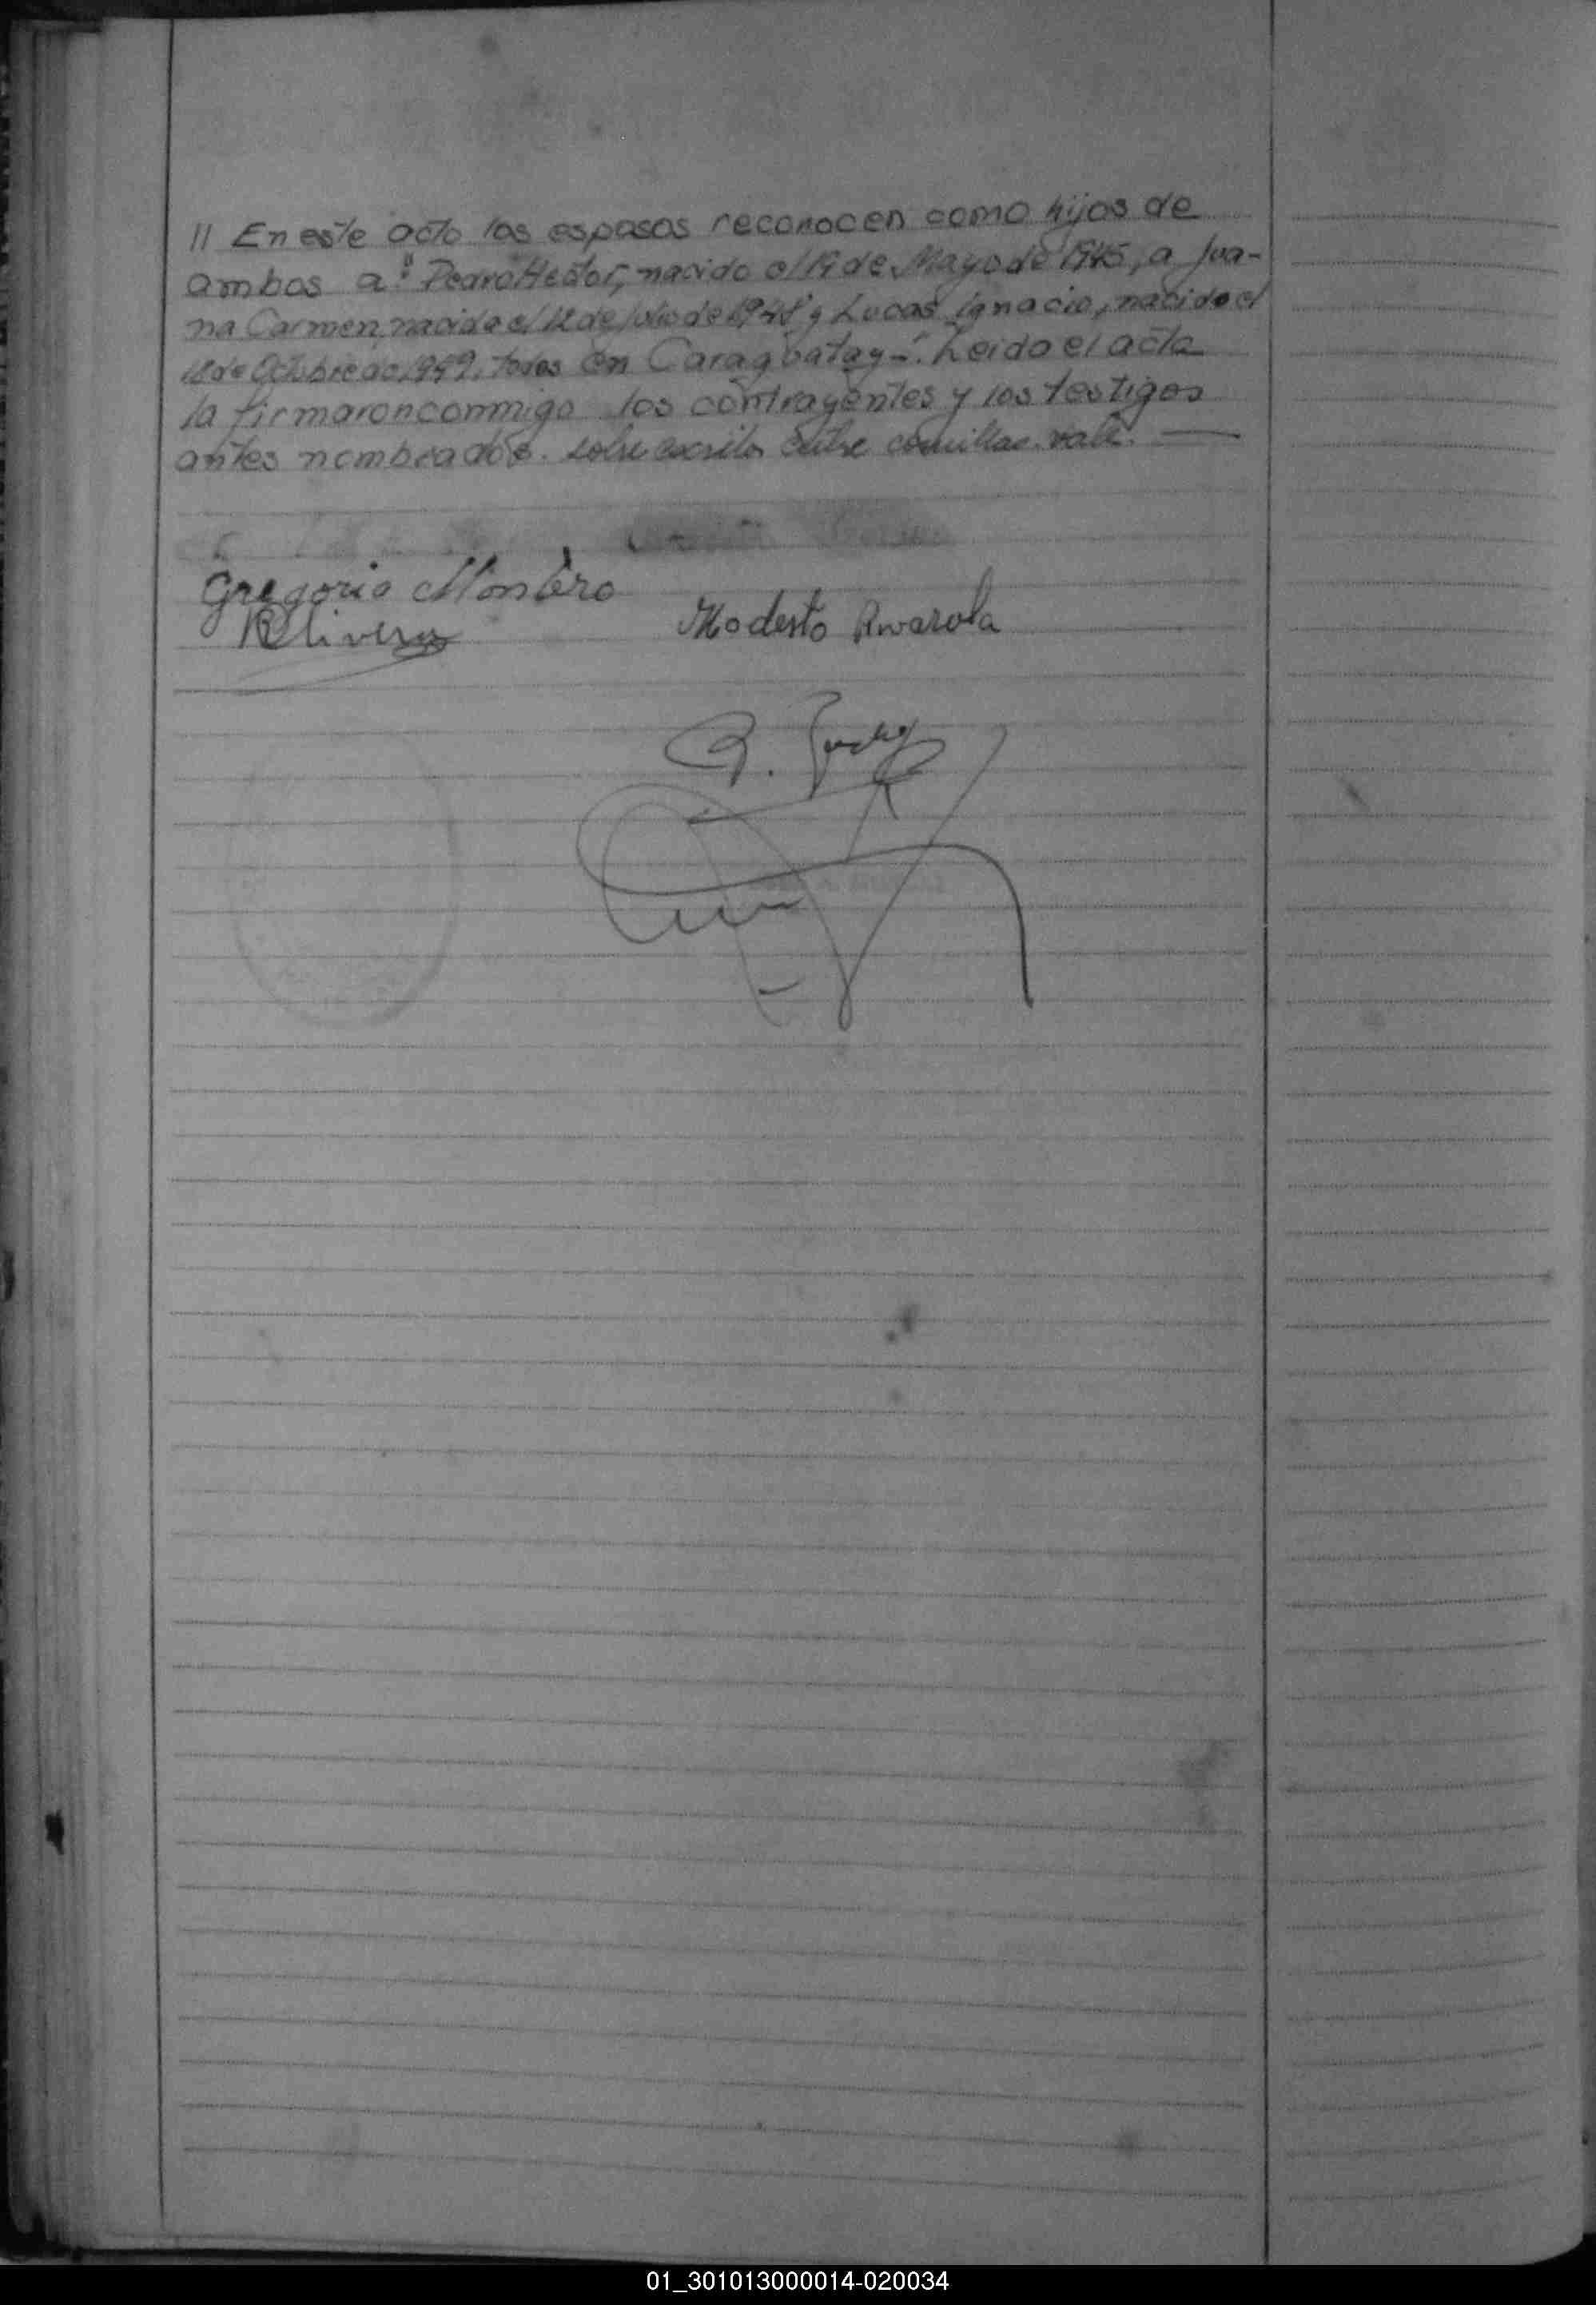 // En este acto los esposos reconocen como hijos de
ambos a: "Pedro Hector, nacido el 19 de Mayo de 1945, a Jua-
na Carmen, nacida el 12 de Julio de 1948 y Lucas Ignacio, nacido el
18 de Octubre de 1959, todos en Caraguatay-". Leido el acta
la firmaron conmigo los contrayentes y los testigos
antes nombrados. sobre escrito entre comillas. vale. —
Gregorio Montero
Modesto Rivarola
01_301013000014-020034